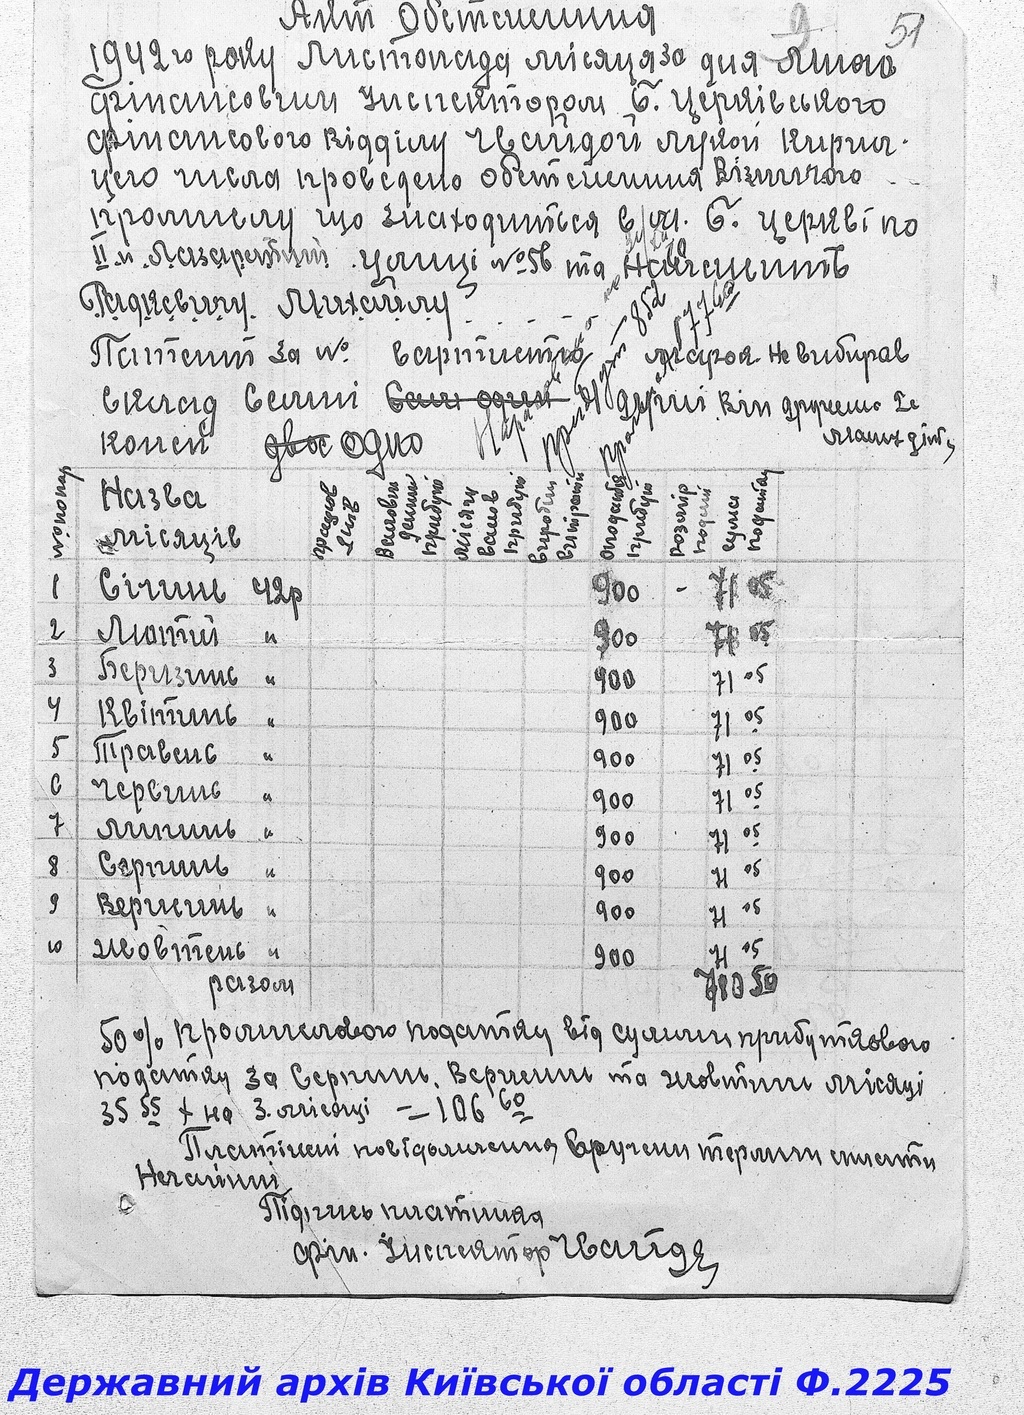 Акт Обстеження
9 51
1942 го року Листопада місяця 30 дня Мною
фінансовим Інспектором Б. Церківського
фінансового Відділу Гвайдой Лукой Кирил.
цего числа проведено обстеження Візничого
промислу що знаходиться в м. Б. Церкві по
II й Лазаретній улиці № 56 та Належить
Радкевичу Михайлу
Патент за № вартистю марок Не вибирав
склад Семьї Він дружена 2є
малих дітей
Коней двое одно
№ попор
Назва місяців
Валовий денний прибуток
Місячн валов прибуток
виробнич витрати
Оподатков прибуток
Розмір
сума податку
1 Січень 42р 900 - 71 05
2 Лютий " 900 71 05
3 Березинь " 900 71 05
4 Квітинь " 900 71 05
5 Травень " 900 71 05
6 Червинь " 900 71 05
7 Липинь " 900 71 05
8 Серпинь 900 71 05
9 Вересинь " 900 71 05
10 Жовтень " 900 71 05
разом 710 50
50 % Промислового податку від суми прибуткового
податку за Серпинь, Вересинь та жовтинь місяці
35 55 х на 3. місяці = 106 60
Платіжні повідомлення вручени термин сплати
Негайний
Підпись платника
фін. Інспектор Гвайда
Державний архів Київської області Ф.2225